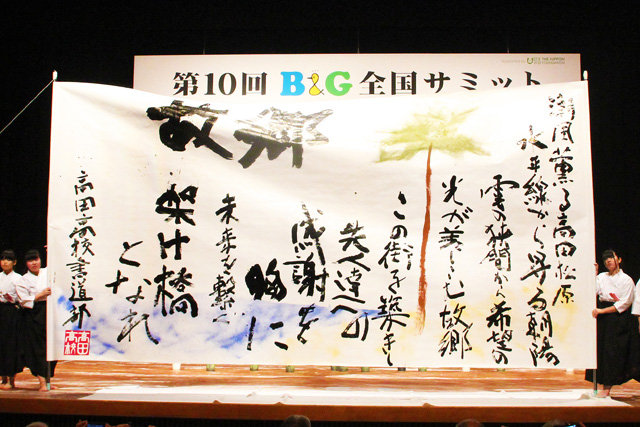 第10回 B&G 全国サミット
THE NIPPON
FOUNDATION
故郷
清風薫る高田松原
水平線から昇る朝陽
雲の狭間から希望の
光が差しこむ故郷
この街を築きし
先人達への
感謝を
胸に
未来を繋ぐ
架け橋
となれ
高田高校書道部
高田
高校